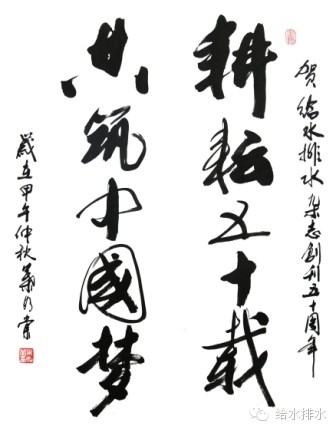 贺给水排水杂志創刊五十周年
耕耘五十载
共筑中國梦
歲在甲午仲秋
给水排水